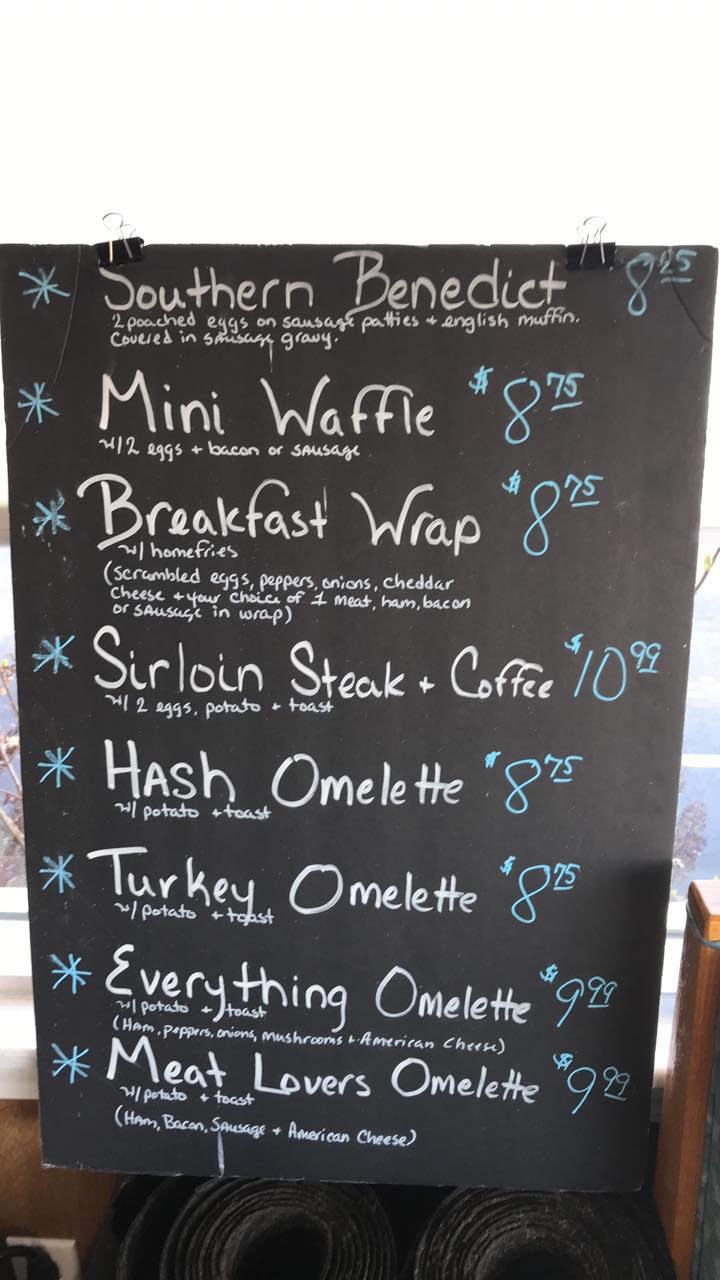 * Southern Benedict 8.25
2 poached eggs on sausage patties + english muffin.
Covered in sausage gravy.
* Mini Waffle $8.75
w/2 eggs + bacon or sausage
* Breakfast Wrap $8.75
w/ homefries
(scrambled eggs, peppers, onions, cheddar
cheese + your choice of 1 meat, ham, bacon
or sausage in wrap)
* Sirloin Steak + Coffee $10.99
w/ 2 eggs, potato + toast
* HASh Omelette $8.75
w/ potato + toast
* Turkey Omelette $8.75
w/ potato + toast
* Everything Omelette $9.99
w/ potato + toast
(HAm, peppers, onions, mushrooms + American Cheese)
* Meat Lovers Omelette $9.99
w/ potato + toast
(HAm, Bacon, Sausage + American Cheese)